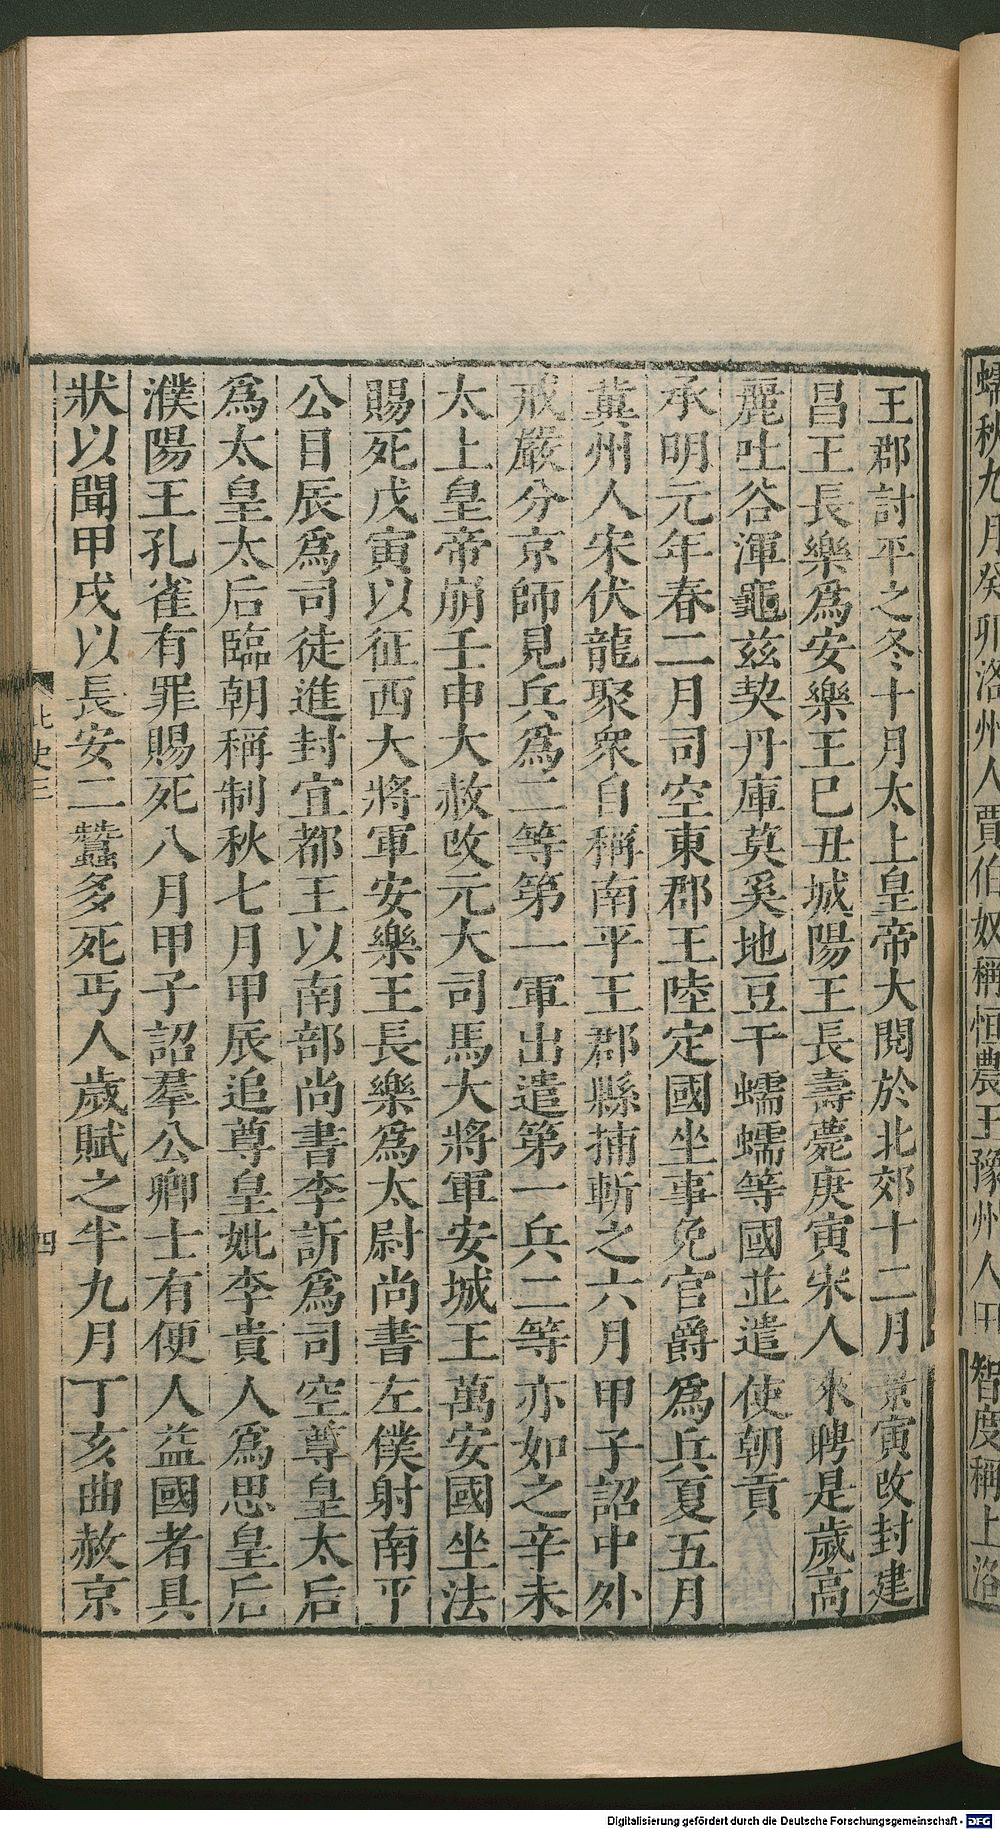 蠕秋九月癸卯洛州人賈伯奴稱恒農王豫州人田智度稱上洛
王郡討平之冬十月太上皇帝大閱於北郊十二月景寅改封建
昌王長樂爲安樂王已丑城陽王長壽薨庚寅宋人來聘是歲高
麗吐谷渾龜茲契丹庫莫奚地豆干蠕蠕等國並遣使朝貢
承明元年春二月司空東郡王陸定國坐事免官爵爲兵夏五月
冀州人宋伏龍聚衆自稱南平王郡縣捕斬之六月甲子詔中外
戒嚴分京師見兵爲二等第一軍出遣第一兵二等亦如之辛未
太上皇帝崩壬申大赦改元大司馬大將軍安城王萬安國坐法
賜死戊寅以征西大將軍安樂王長樂爲太尉尚書左僕射南平
公目辰爲司徒進封宜都王以南部尚書李訢爲司空尊皇太后
爲太皇太后臨朝稱制秋七月甲辰追尊皇妣李貴人爲思皇后
濮陽王孔雀有罪賜死八月甲子詔羣公卿士有便人益國者具
狀以聞甲戌以長安二蠶多死丐人歲賦之半九月丁亥曲赦京
北史三
四
Digitalisierung gefördert durch die Deutsche Forschungsgemeinschaft - DFG